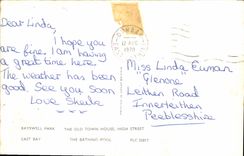 Dear Linda,
I hope you
are fine. I am having
a great time here.
The weather has been
good. See you soon
Love Sheila
12 AUG
1970
Miss Linda Cuman
"Glenone"
Leithen Road
Innerleithen
Peeblesshire
BAYSWELL PARK THE OLD TOWN HOUSE, HIGH STREET
EAST BAY THE BATHING POOL